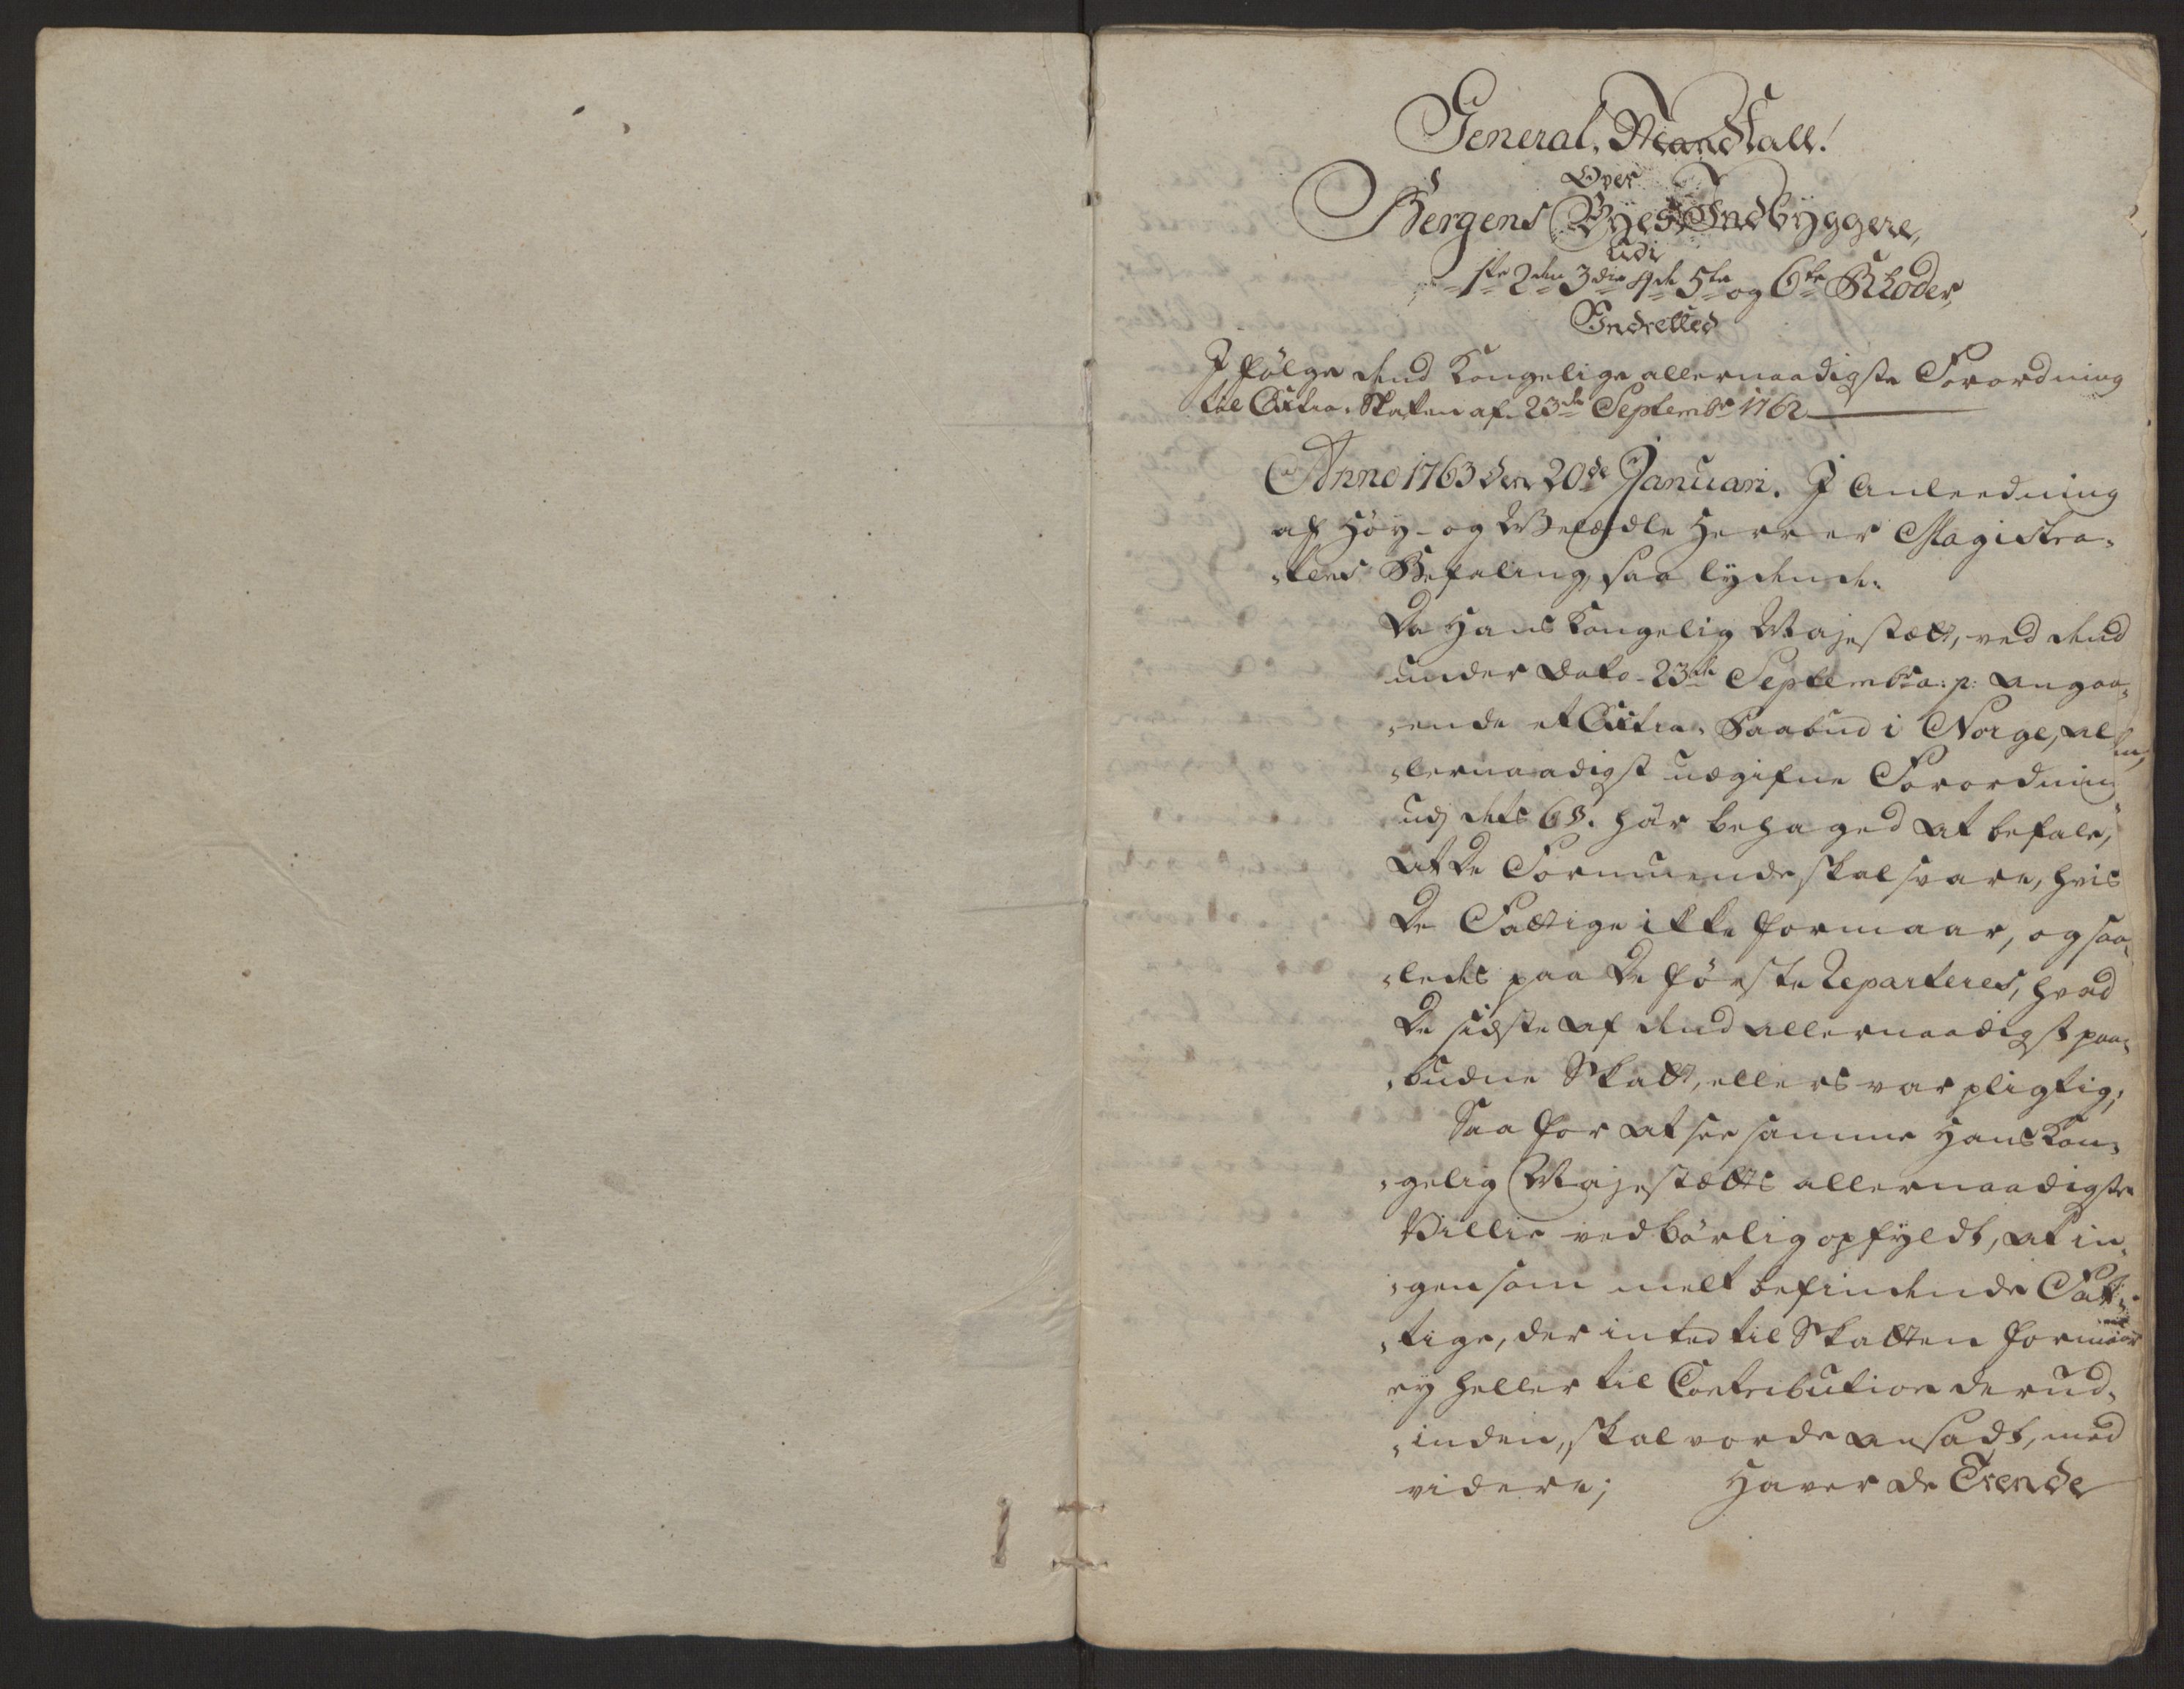 General. Mandtall!
Over
Bergens Byes Indbyggere,
udi
1ste 2den 3die 4de 5te og 6te Rhoder,
Indretted
I følge dend Kongelige allernaadigste Forordning
til Extra-Skatten af 23de Septembr 1762
Anno 1763 den 20de Januari. I Anleedning
af Høy- og Velædle Herrer Magistra-
-tens Befaling saa lydende:
Da Hans Kongelig Majestætt, ved dend
under Dato 23de Septembr a: p: angaa-
-ende et Extra-Paabud i Norge, al-
-lernaadigst udgifne Forordning
udj dets 6 §. har behaged at befale,
at De Formuende skal svare, hvis
De Fattige ikke formaar, og saa-
-ledes paa De første Reparteres, hvad
De sidste af dend allernaadigst paa-
-budne Skatt, ellers var pligtig;
Saa for at see samme Hans Kon-
-gelig Majestætts allernaadigste
Villie vedbørlig opfyldt, at in-
-gen som melt befindende Fat-
-tige, der inted til Skatten formaar
ey heller til Contribution derud-
-inden, skal vorde ansadt, med
videre; Haver De Tvende